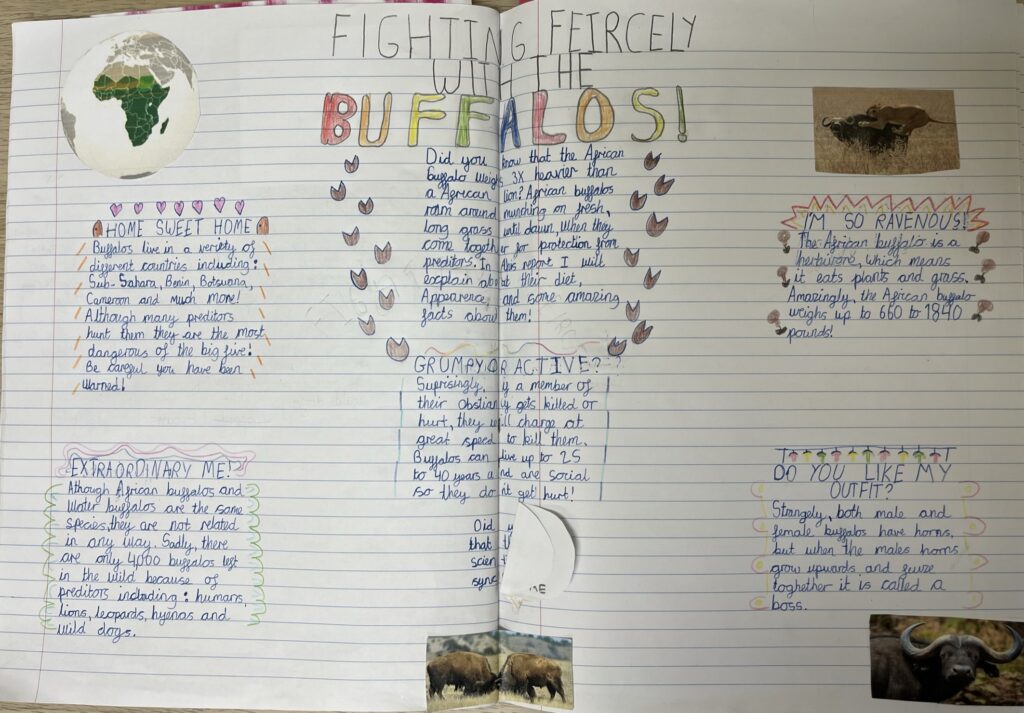 FIGHTING FEIRCELY
WITH THE
BUFFALOS!
Did you know that the African
buffalo weighs 3X heavier than
a African lion? African buffalos
roam around munching on fresh,
long grass until dawn, when they
come together for protection from
preditors. In this report I will
explain about their diet,
Appearence, and some amazing
facts about them!
HOME SWEET HOME
Buffalos live in a veriety of
different countries including:
Sub-Sahara, Benin, Botsuana,
Cameroon and much more!
Although many preditors
hunt them they are the most
dangerous of the big five!
Be careful you have been
warned!
I'M SO RAVENOUS!
The African buffalo is a
herbivore, which means
it eats plants and grass.
Amazingly, the African buffalo
weighs up to 660 to 1840
pounds!
GRUMPY OR ACTIVE?
Suprisingly, if a member of
their gets killed or
hurt, they will charge at
great speed to kill them.
Buffalos can live up to 25
to 40 years and are social
so they do nt get hurt!
EXTRAORDINARY ME!
Although African buffalos and
Water buffalos are the same
species, they are not related
in any way. Sadly, there
are only 4,000 buffalos left
in the wild because of
preditors including: humans,
lions, leopards, hyenas and
wild dogs.
DO YOU LIKE MY
OUTFIT?
Strangely, both male and
female buffalos have horns,
but when the males horns
grow upwards and fuize
toghether it is called a
boss.
Did
that
scien
sync
ME